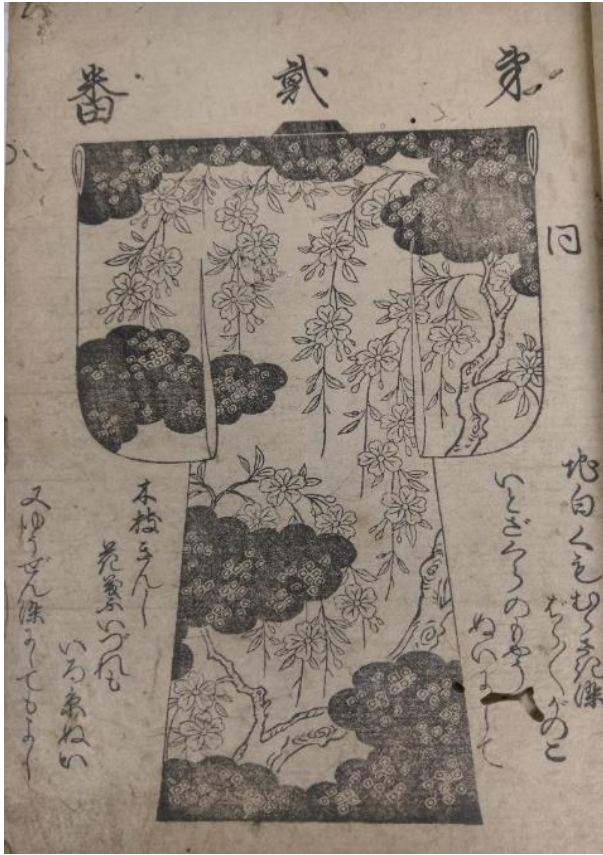 第貳番
同
地白くもむらさき染
ばら〱がのこ
いとざくらのもやう
ぬいにして
木枝きんし
花葉いづれも
いろ糸ぬい
又ゆうぜん染にしてもよし